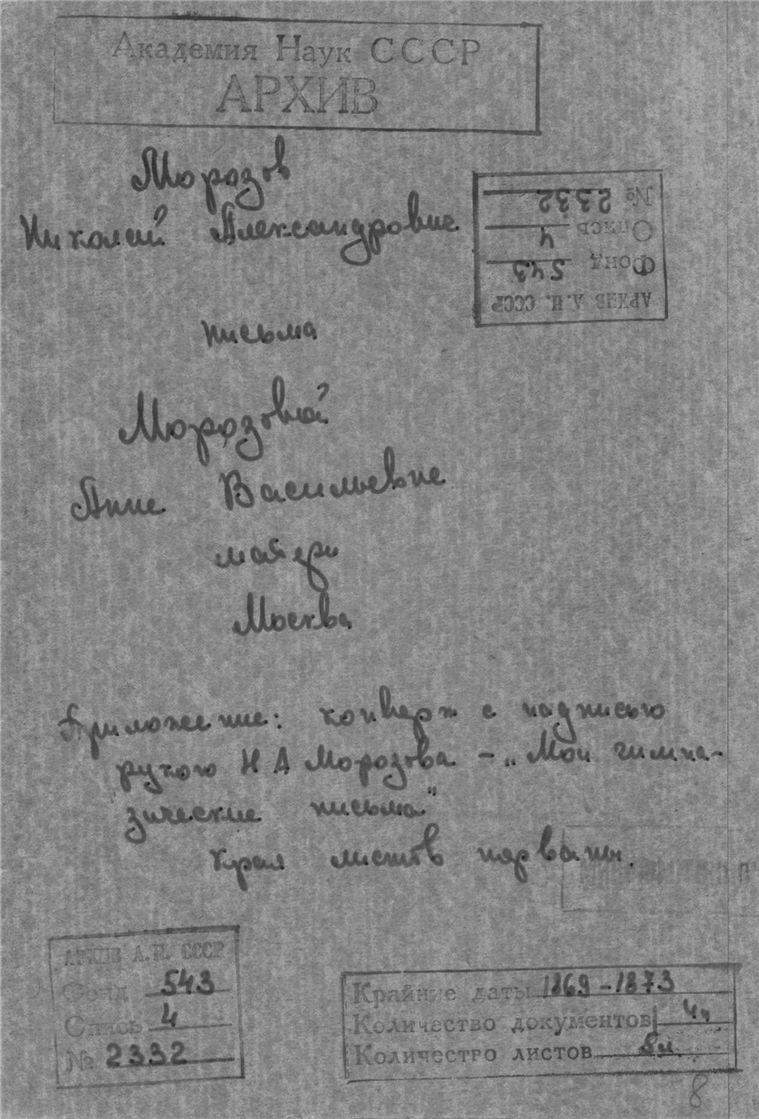 Академия Наук СССР
АРХИВ
Морозов
Николай Александрович
№ 2332
Опись 4
Фонд 543
АРХИВ А.Н. СССР
письма
Морозовой
Анне Васильевне
матери
Москва
Приложение: конверт с надписью
рукою Н А Морозова - „Мои гимна-
зические письма"
Края листов порваны.
АРХИВ А.Н. СССР
Фонд 543
Опись 4
№ 2332
Крайние даты 1869-1873
Количество документов
Количество листов 8л.
8